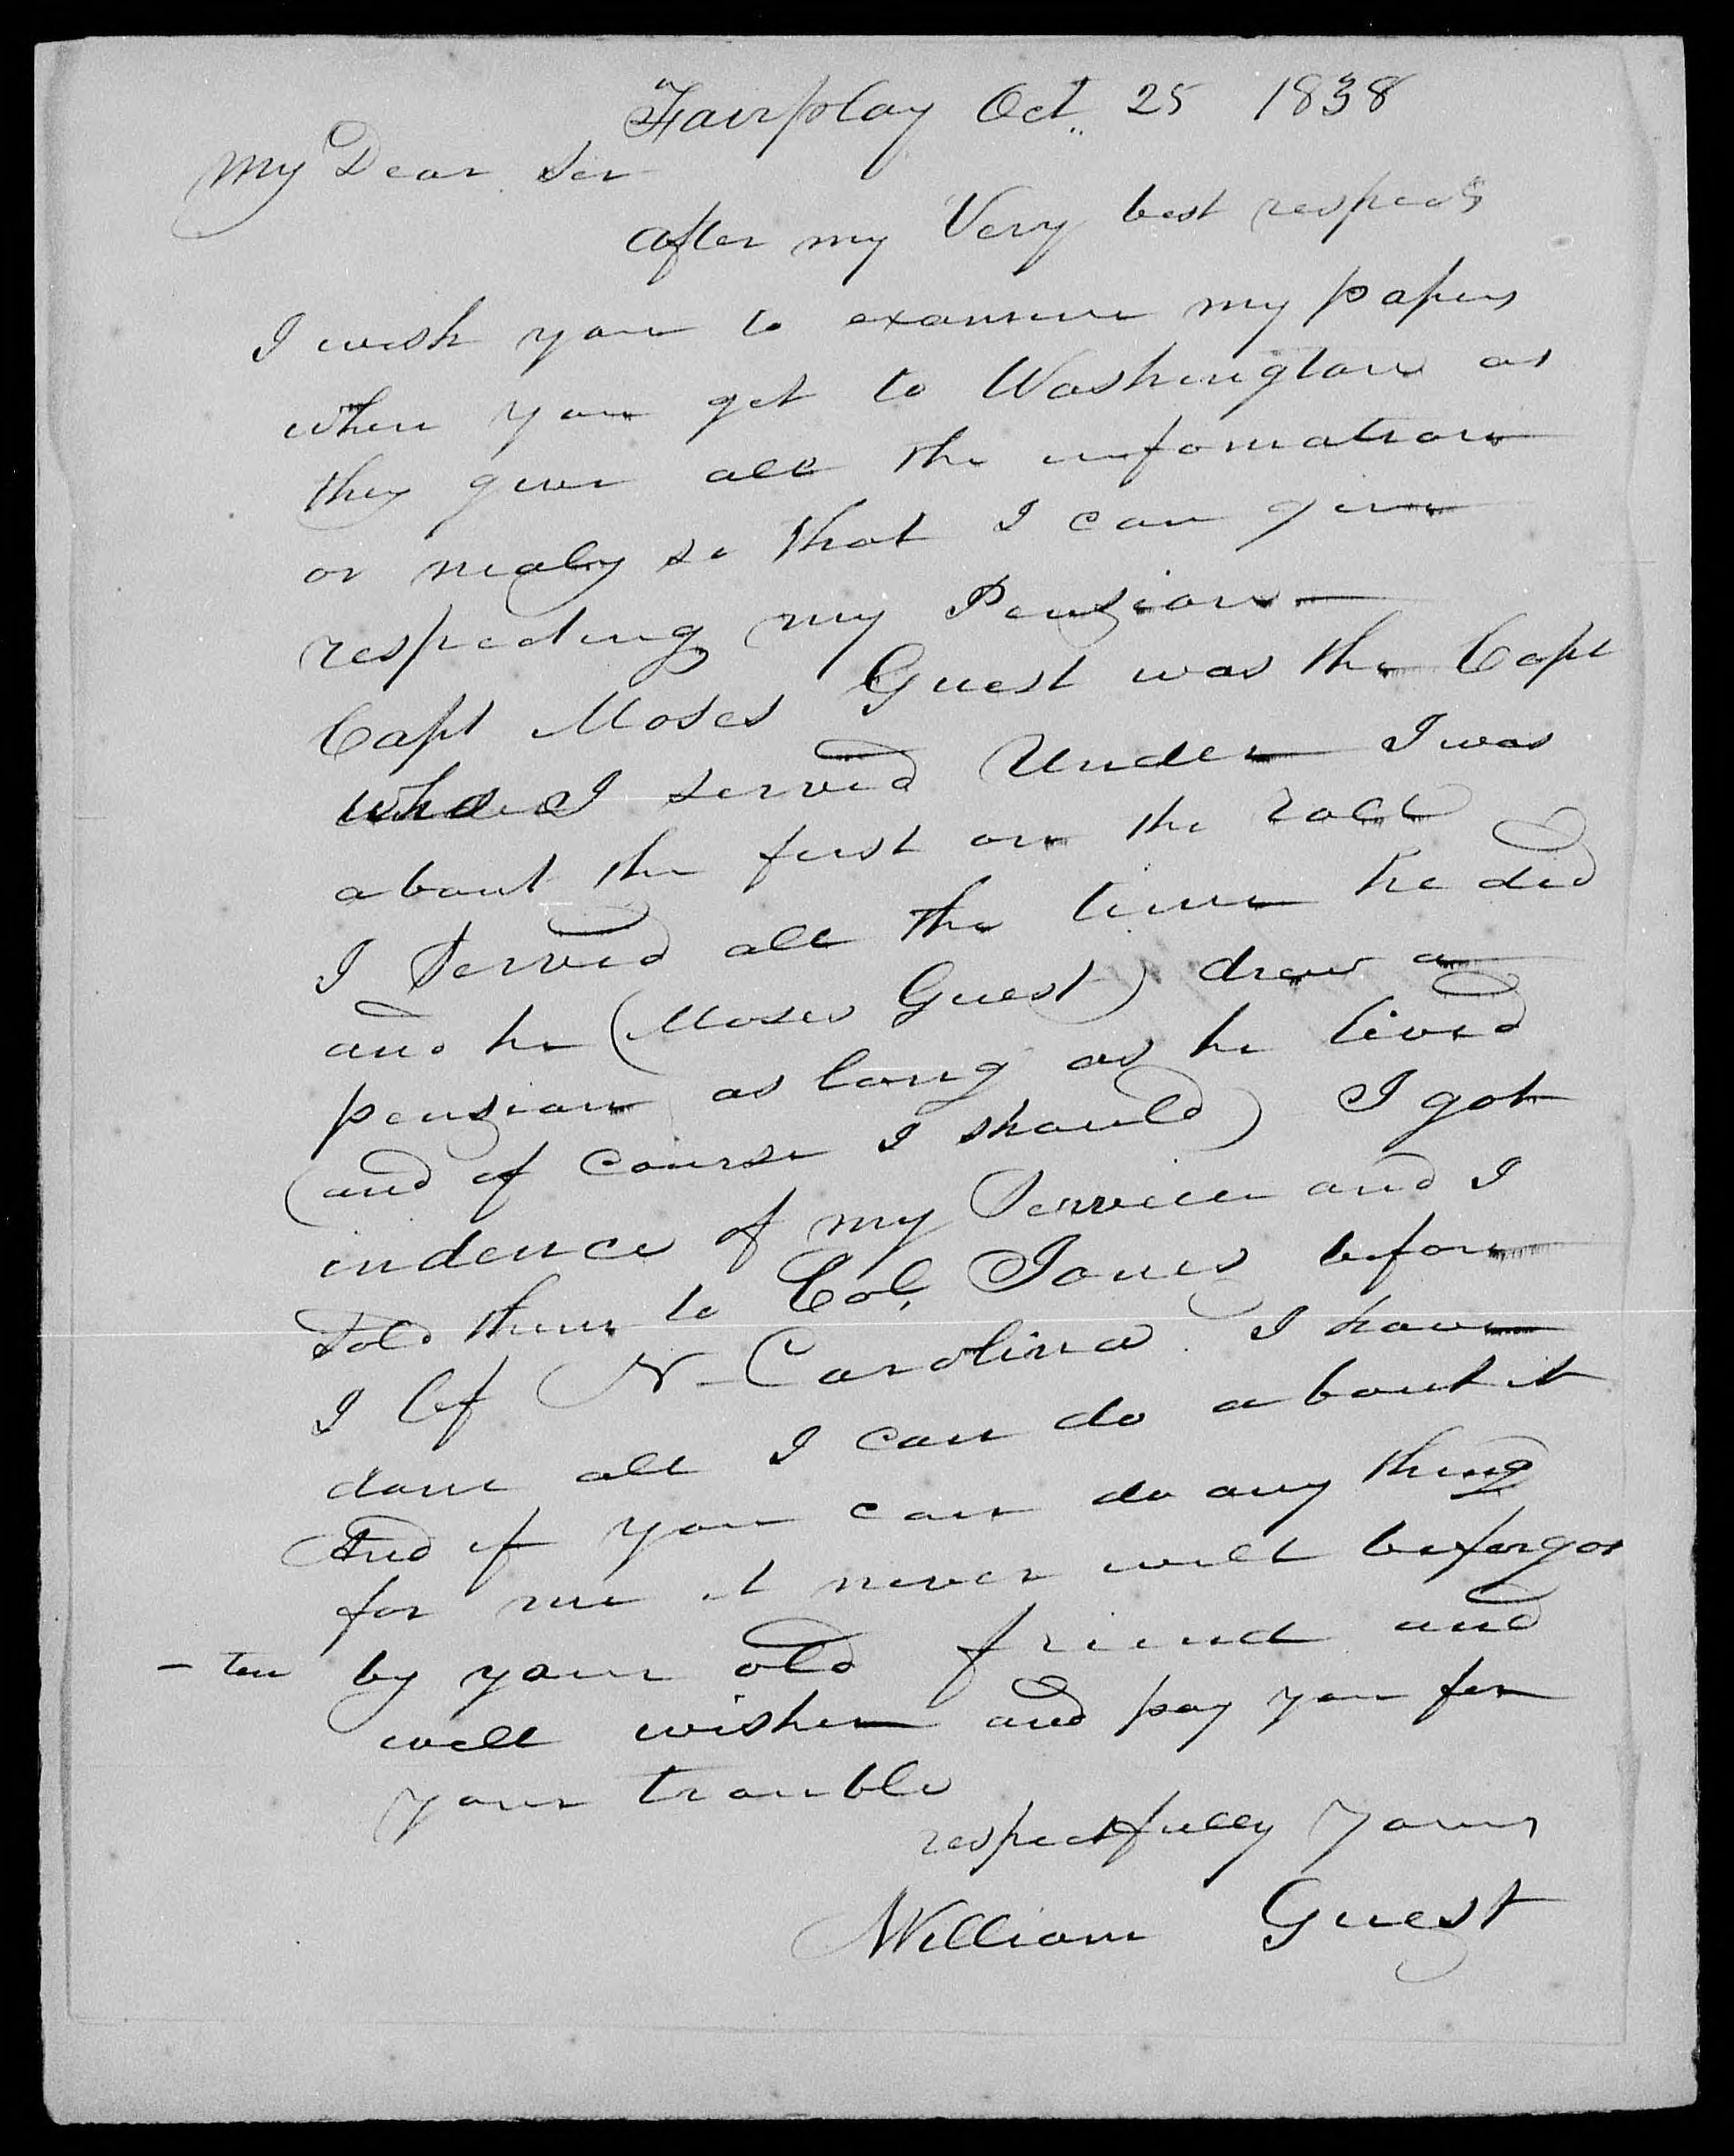 Fairplay Oct 25 1838
My Dear Ser
after my Very best respects
I wish you to examine my papers
when you get to Washington as
they give all the infomation
or nealy so that I can give
respecting my Penzion
Capt Moses Guest was the Capt
who I served Under I was
about the first on the roll
I Served all the time he did
and he (Moses Guest) drew a
penzion as long as he lived
(and of course I should) I got
indence of my Service and I
sold them to Col, Jones before
I lef N- Carolina I have
done all I can do about it
And if you can do any thing
for me it never will be forgot
- ten by your old friend and
well wisher and pay you for
your trouble
respectfully Yours
William Guest